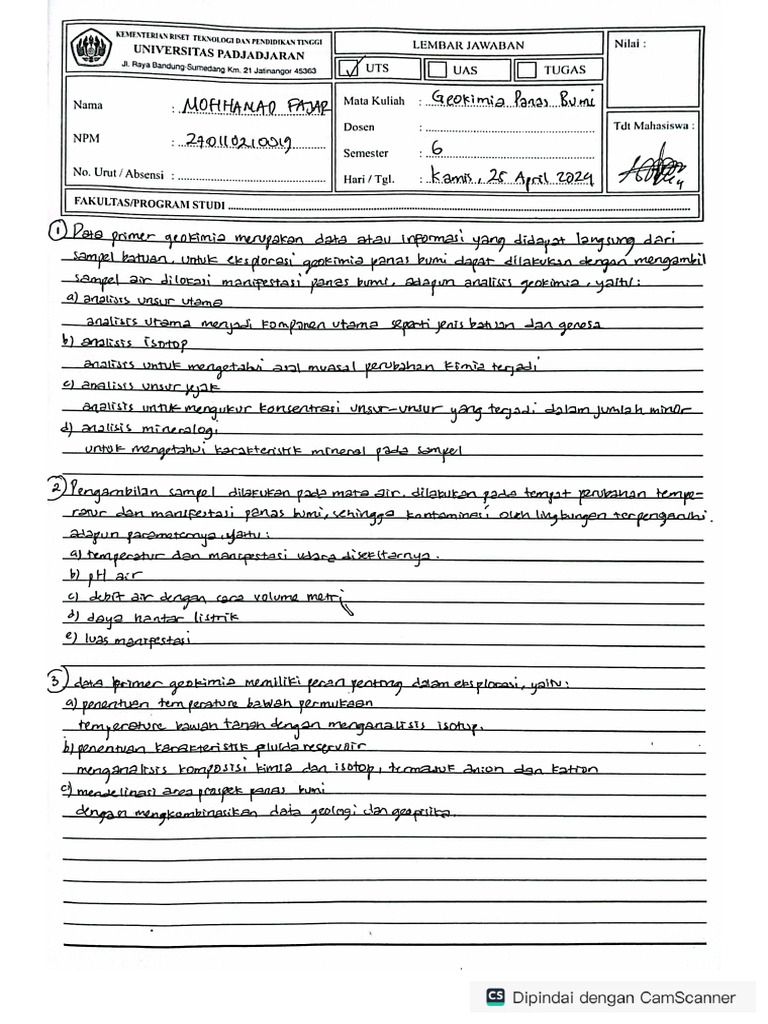 KEMENTERIAN RISET TEKNOLOGI DAN PENDIDIKAN TINGGI
UNIVERSITAS PADJADJARAN
Jl. Raya Bandung-Sumedang Km. 21 Jatinangor 45363
LEMBAR JAWABAN
UTS UAS TUGAS
Nilai :
Nama : MOHHAMAD FAJAR
NPM : 270110210019
No. Urut / Absensi :
Mata Kuliah : Geokimia Panas Bumi
Dosen :
Semester : 6
Hari / Tgl. : Kamis, 25 April 2024
Tdt Mahasiswa :
FAKULTAS/PROGRAM STUDI
1) Data primer geokimia merupakan data atau informasi yang didapat langsung dari
sampel batuan, untuk eksplorasi geokimia panas bumi dapat dilakukan dengan mengambil
sampel air dilokasi manifestasi panas bumi, adapun analisis geokimia, yaitu :
a) analisis unsur utama
analisis utama menjadi komponen utama seperti jenis batuan dan genesa
b) analisis isotop
analisis untuk mengetahui asal muasal perubahan kimia terjadi
c) analisis unsur jejak
analisis untuk mengukur konsentrasi unsur-unsur yang terjadi dalam jumlah minor
d) analisis mineralogi
untuk mengetahui karakteristik mineral pada sampel
2) Pengambilan sampel dilakukan pada mata air. dilakukan pada tempat perubahan tempe-
ratur dan manifestasi panas bumi, sehingga kontaminasi oleh lingkungan terpengaruhi.
adapun parameternya, yaitu :
a) temperatur dan manifestasi udara disekitarnya.
b) pH air
c) debit air dengan cara volume metri
d) daya hantar listrik
e) luas manifestasi
3) data primer geokimia memiliki peran penting dalam eksplorasi, yaitu :
a) penentuan temperature bawah permukaan
temperature bawah tanah dengan menganalisis isotop.
b) penentuan karakteristik fluida reservoir
menganalisis komposisi kimia dan isotop, termasuk anion dan kation
c) mendelinasi area prospek panas bumi
dengan mengkombinasikan data geologi dan geofisika.
CS Dipindai dengan CamScanner